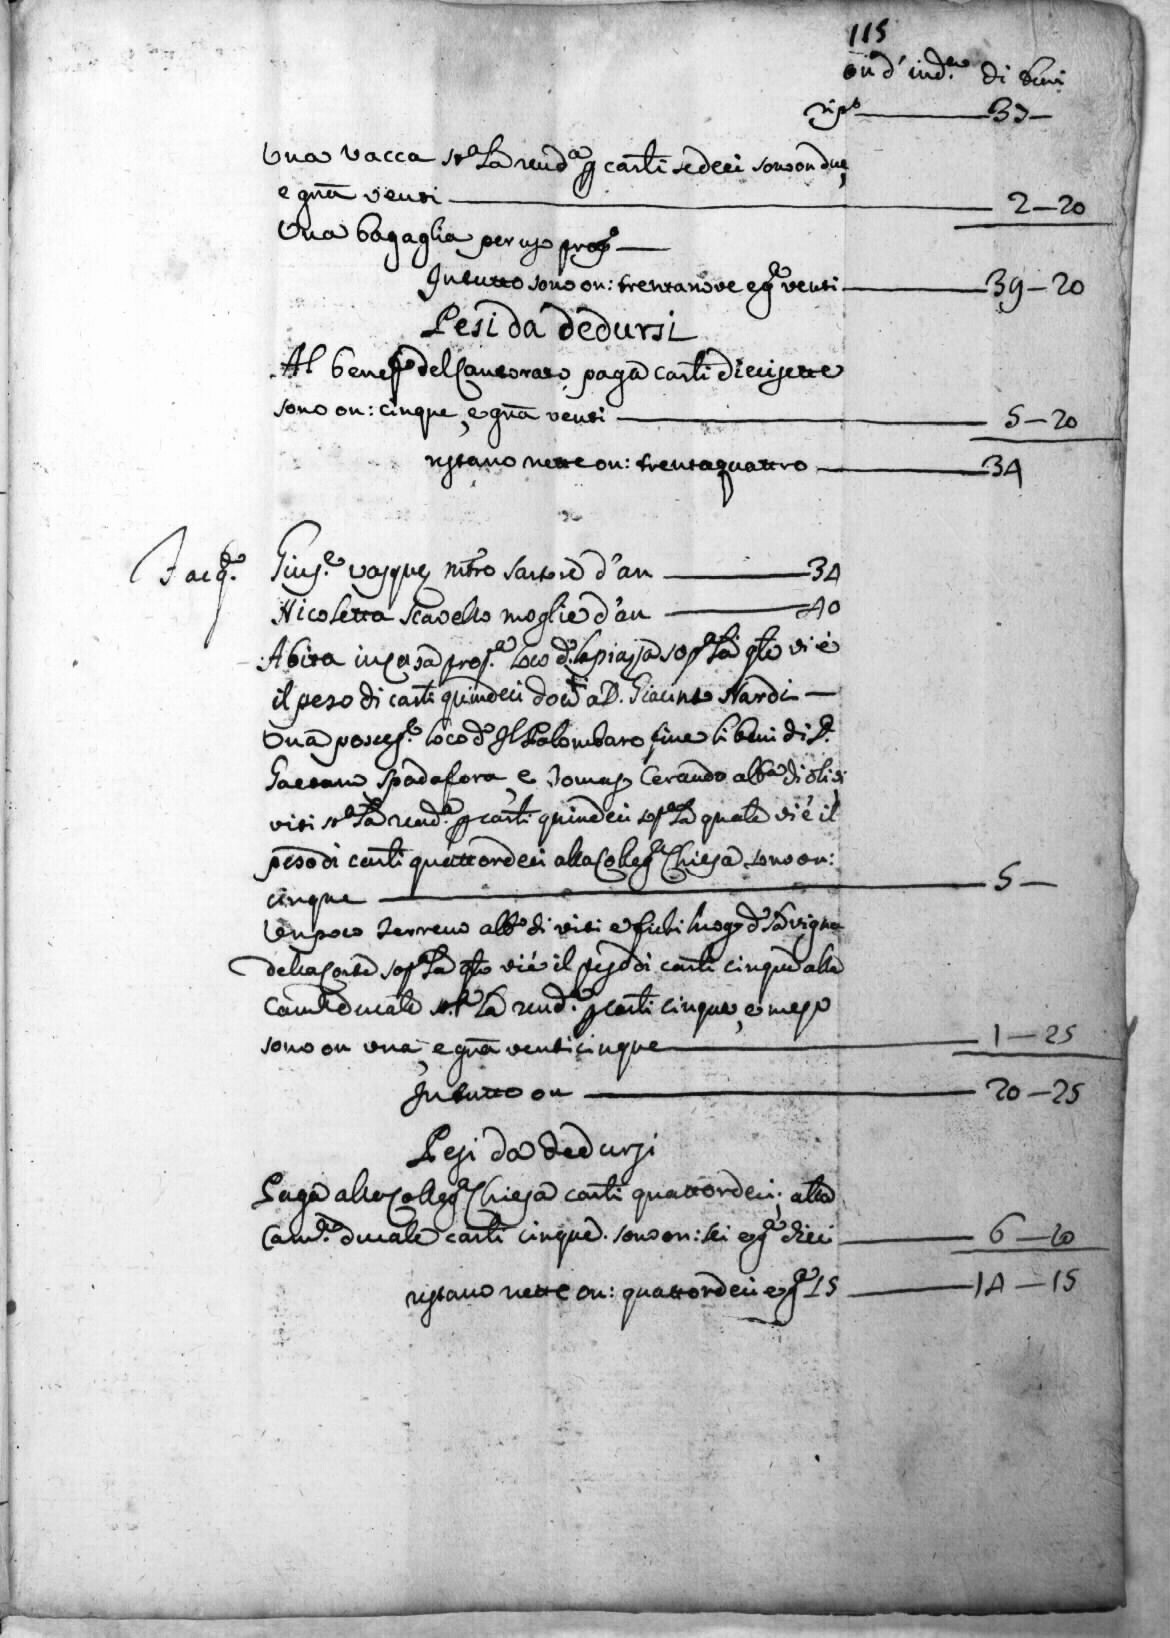 115
on d'ind.ª di beni
rip.º 37—
Una vacca st.ª la rend.ª p carlí sedeci sono on due,
e gña venti 2—20
Una bagaglia per uso prop.º
In tutto sono on: trentanove e g.ª venti 39—20
Pesi da dedursi
Al benef.º del Cantorato paga carlí diecisette
sono on: cinque, e gña venti 5—20
restano nette on: trentaquattro 34
Gius.e mro sartore d'an 34
Nicoletta Scavello moglie d'an 40
Abita in casa prop.ª loco d.º la piazza sop.ª la qle vi è
il peso di carlí quindeci a D. Giacinto Nardi —
Una posses.e loco d.º Il Palombaro fine li beni di D.
Gaetano Spadafora, e Tomaso Cerando alb.ª di olivi
viti st.ª la rend.ª p carlí quindeci sop.ª la quale vi è il
peso di carlí quattordeci alla Colleg.ª Chiesa sono on:
cinque 5—
Un poco terreno alb.º di viti e fichi luogo d.º la vigna
della Corte sop.ª la qle vi è il peso di carlí cinque alla
Cam.ª ducale st.ª la rend.ª p carlí cinque, e mezo
sono on una, e gña venticinque 1—25
In tutto on 20—25
Pesi da dedursi
Paga alla Colleg.ª Chiesa carlí quattordeci, alla
Cam.ª ducale carlí cinque. sono on: sei e g.ª dieci 6—10
restano nette on: quattordeci e g.ª 15 14—15